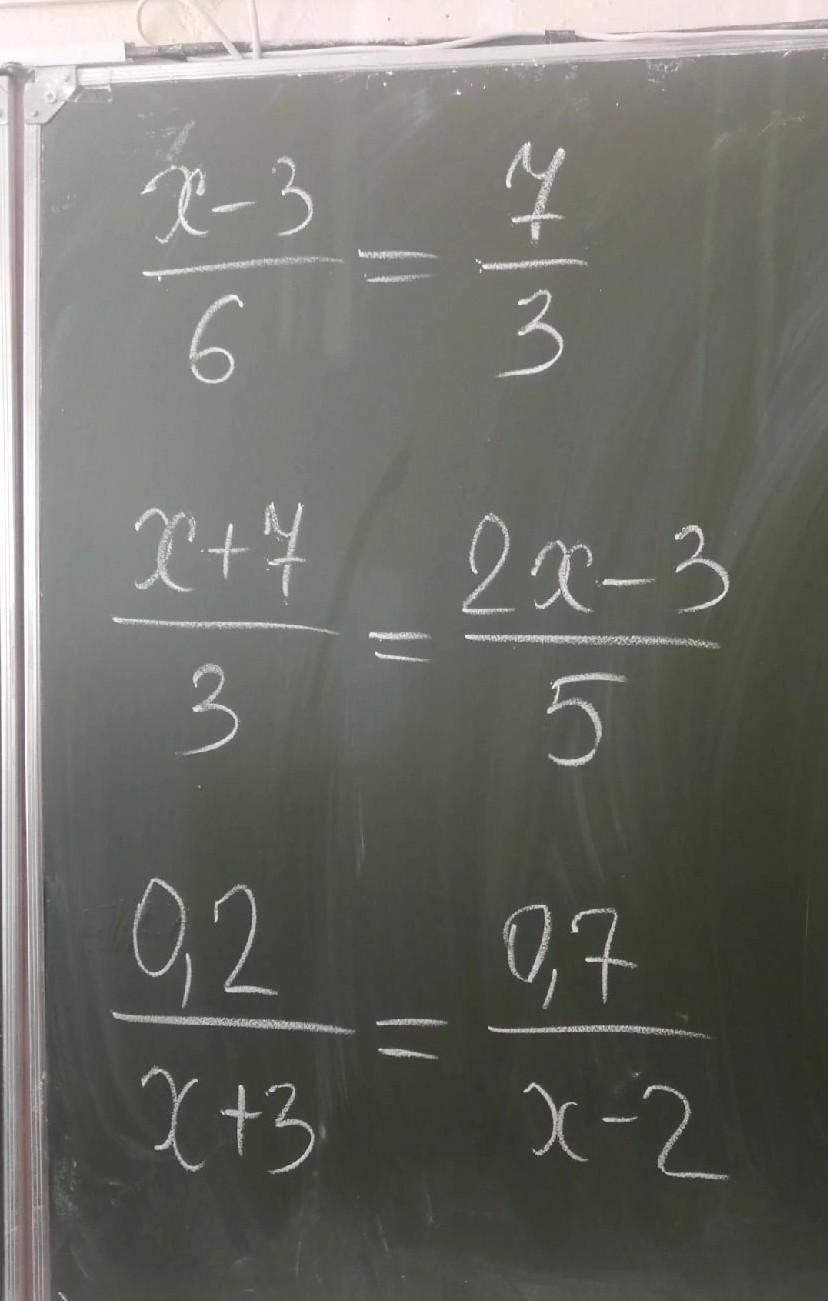 x-3/6 = 7/3
x+7/3 = 2x-3/5
0,2/x+3 = 0,7/x-2